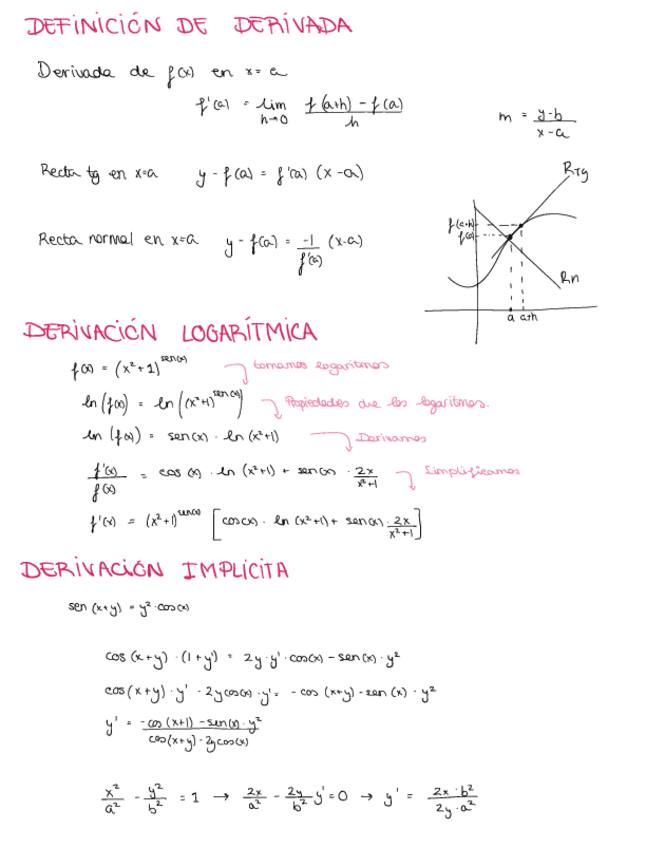 DEFINICIÓN DE DERIVADA
Derivada de f(x) en x = a
f'(a) = lim h→0 f(a+h) - f(a) / h
m = y-b / x-a
Recta tg en x=a y - f(a) = f'(a) (x-a)
Recta normal en x=a y - f(a) = -1/f'(a) (x-a)
RTg
f(a+h)
f(a)
Rn
a a+h
DERIVACIÓN LOGARÍTMICA
f(x) = (x²+1)^sen(x) tomamos logaritmos
ln (f(x)) = ln ((x²+1)^sen(x)) Propiedades de los logaritmos.
ln (f(x)) = sen(x) · ln (x²+1) Derivamos
f'(x)/f(x) = cos (x) · ln (x²+1) + sen(x) · 2x/x²+1 Simplificamos
f'(x) = (x²+1)^sen(x) [cos(x) · ln (x²+1) + sen(x) · 2x/x²+1]
DERIVACIÓN IMPLÍCITA
sen (x+y) = y² · cos(x)
cos (x+y) · (1+y') = 2y · y' · cos(x) - sen(x) · y²
cos(x+y) · y' - 2ycos(x) · y' = - cos (x+y) - sen (x) · y²
y' = -cos (x+1) - sen(x) · y² / cos(x+y) - 2ycos(x)
x²/a² - y²/b² = 1 → 2x/a² - 2y/b² y' = 0 → y' = 2x · b² / 2y · a²